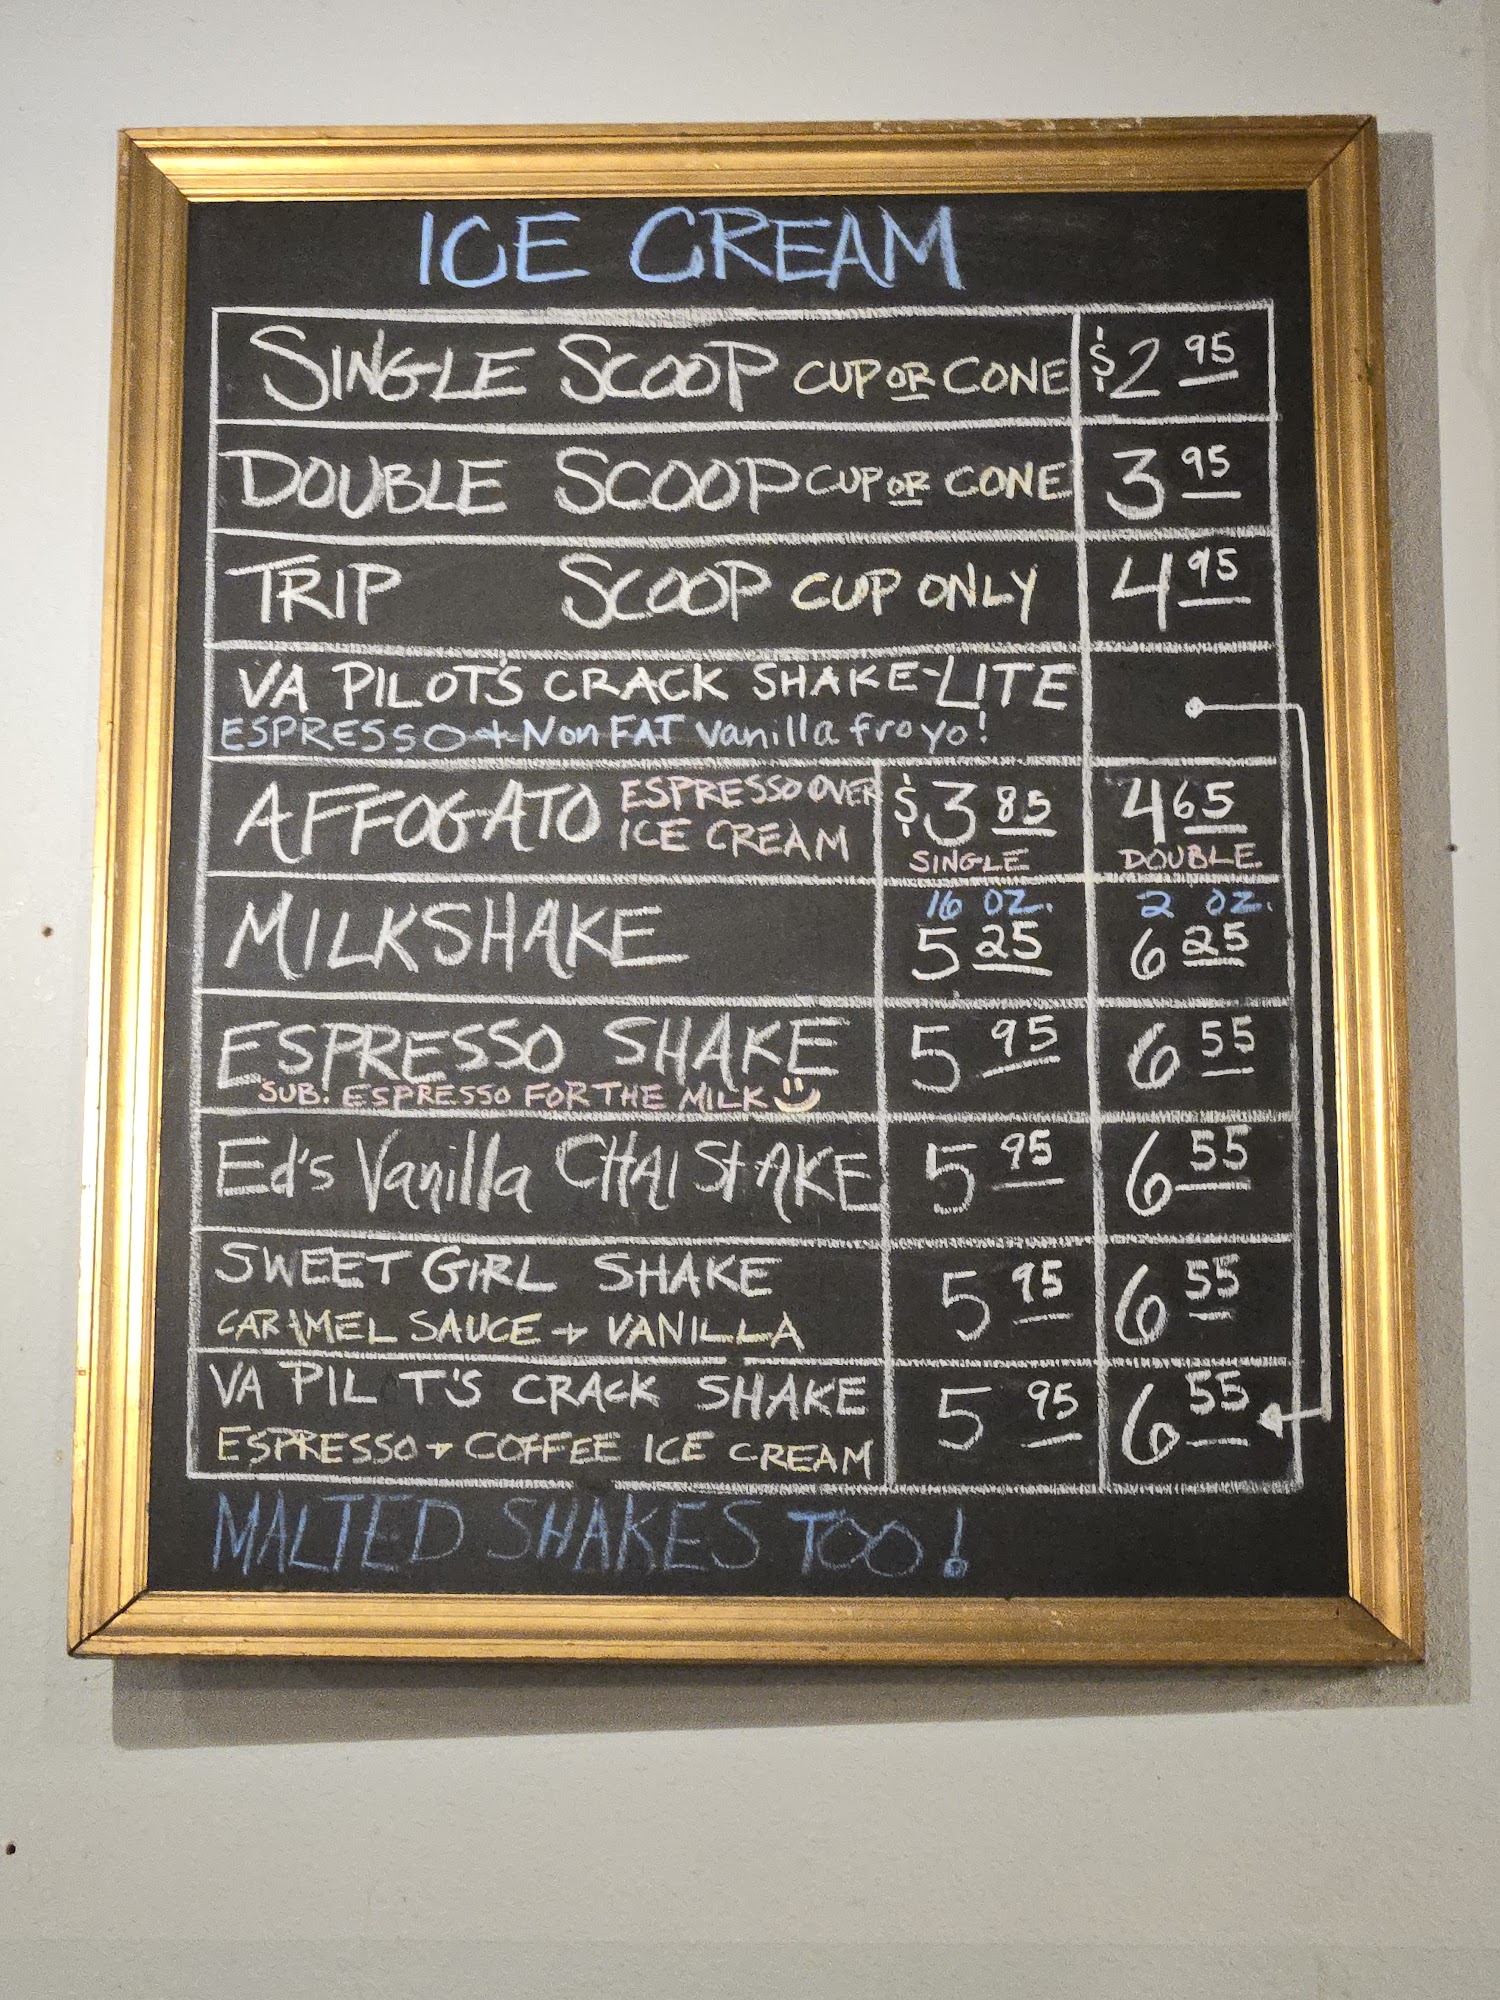 ICE CREAM
SINGLE SCOOP CUP OR CONE $2 95
DOUBLE SCOOP CUP OR CONE 3 95
TRIP SCOOP CUP ONLY 4 95
VA PILOT'S CRACK SHAKE-LITE
ESPRESSO + Non FAT Vanilla froyo!
AFFOGATO ESPRESSO OVER ICE CREAM $3 85 SINGLE 4 65 DOUBLE
16 OZ. 2 OZ.
MILKSHAKE 5 25 6 25
ESPRESSO SHAKE 5 95 6 55
SUB. ESPRESSO FOR THE MILK
Ed's Vanilla CHAI SHAKE 5 95 6 55
SWEET GIRL SHAKE 5 95 6 55
CARAMEL SAUCE + VANILLA
VA PIL T'S CRACK SHAKE 5 95 6 55
ESPRESSO + COFFEE ICE CREAM
MALTED SHAKES TOO!